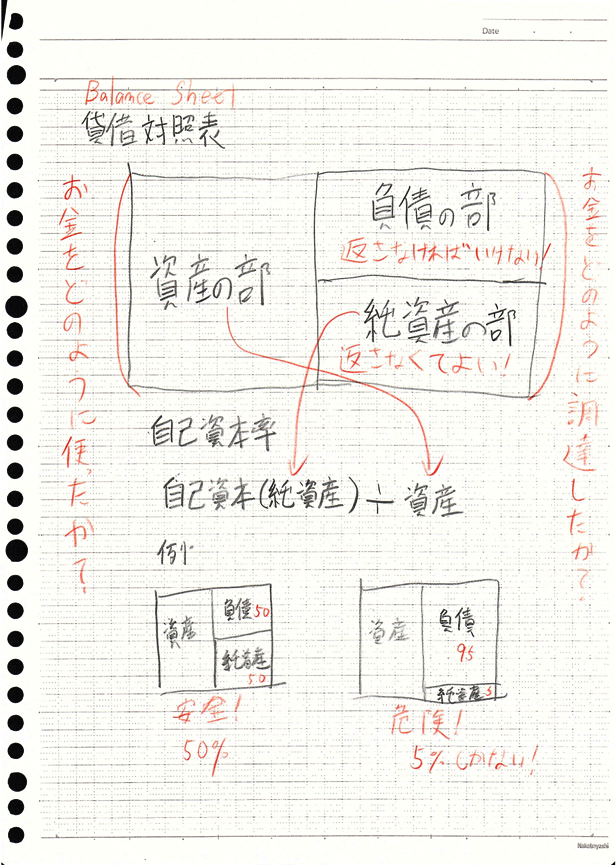 Date
Balance Sheet
貸借対照表
お金をどのように使ったか?
資産の部
負債の部
返さなければいけない!
純資産の部
返さなくてよい!
お金をどのように調達したか?
自己資本率
自己資本(純資産)÷資産
例
資産
負債50
純資産
50
安全!
50%
資産
負債
95
純資産5
危険!
5%しかない!
Nakabayashi